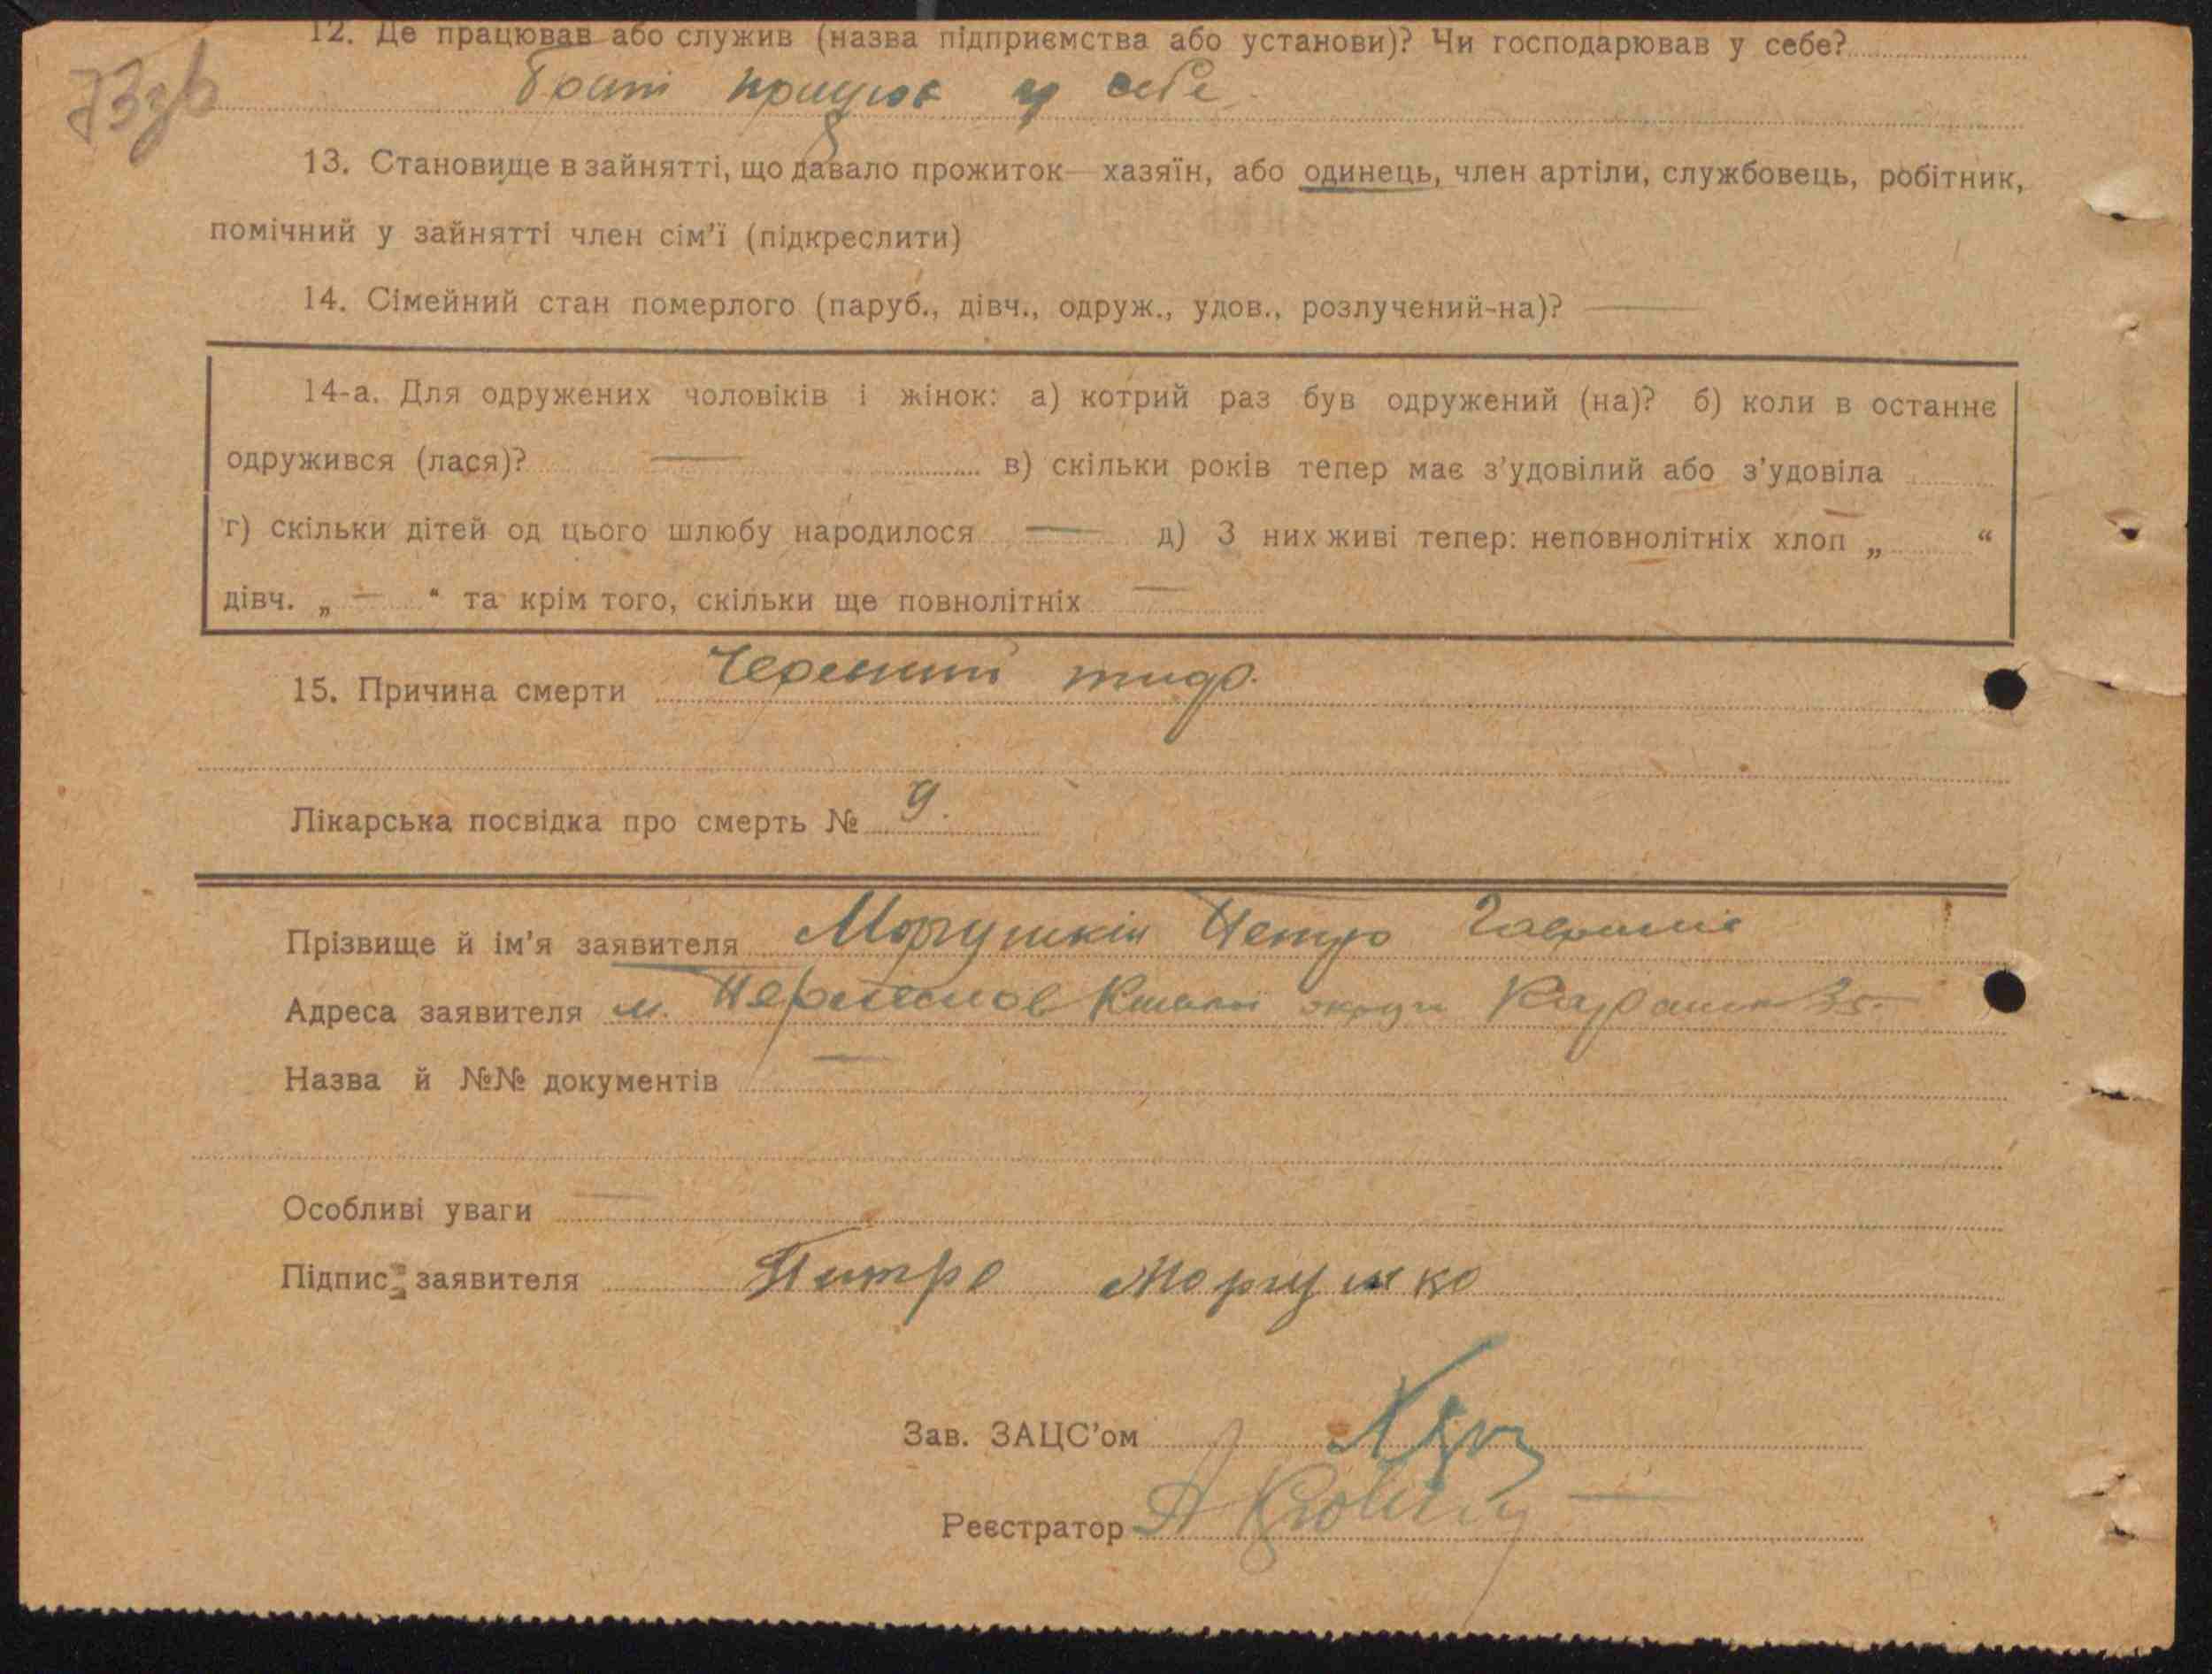 12. Де працював або служив (назва підприємства або установи)? Чи господарював у себе?
73зв
працює у себе
13. Становище в зайнятті, що давало прожиток — хазяїн, або одинець, член артіли, службовець, робітник,
помічний у зайнятті член сім'ї (підкреслити)
14. Сімейний стан померлого (паруб., дівч., одруж., удов., розлучений-на)? —
14-а. Для одружених чоловіків і жінок: а) котрий раз був одружений (на)? б) коли в останнє
одружився (лася)? — в) скільки років тепер має з'удовілий або з'удовіла
г) скільки дітей од цього шлюбу народилося — д) З них живі тепер: неповнолітніх хлоп „ — “
дівч. „ — “ та крім того, скільки ще повнолітніх —
15. Причина смерти Черевний тиф.
Лікарська посвідка про смерть № 9.
Прізвище й ім'я заявителя Моргушкін Петро
Адреса заявителя м. округи 35.
Назва й №№ документів —
Особливі уваги —
Підпис заявителя Питро Моргушко
Зав. ЗАЦС'ом
Реєстратор